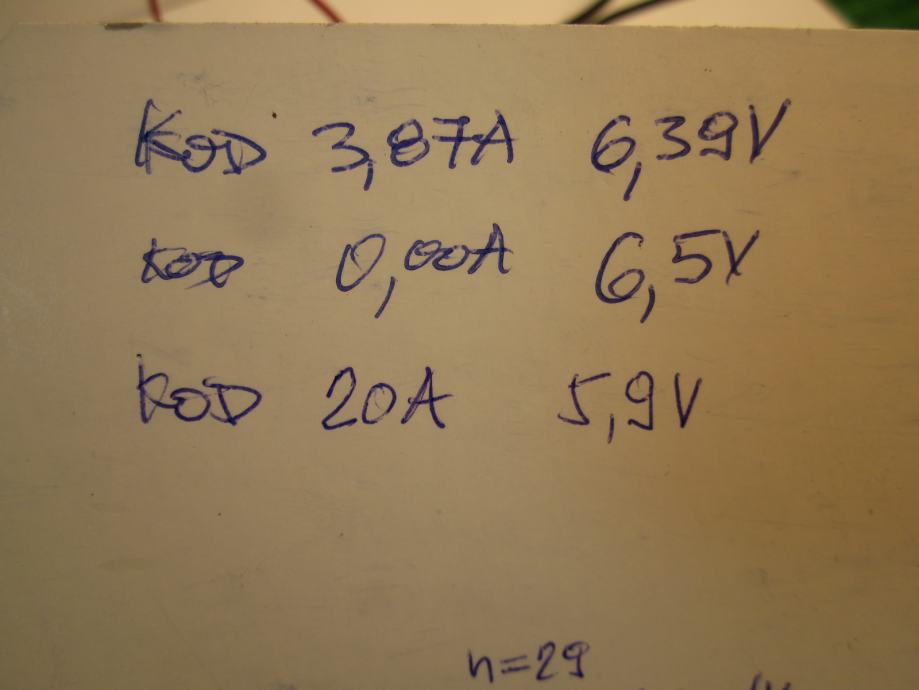 KOD 3,87A 6,39V
KOD 0,00A 6,5V
KOD 20A 5,9V
n=29